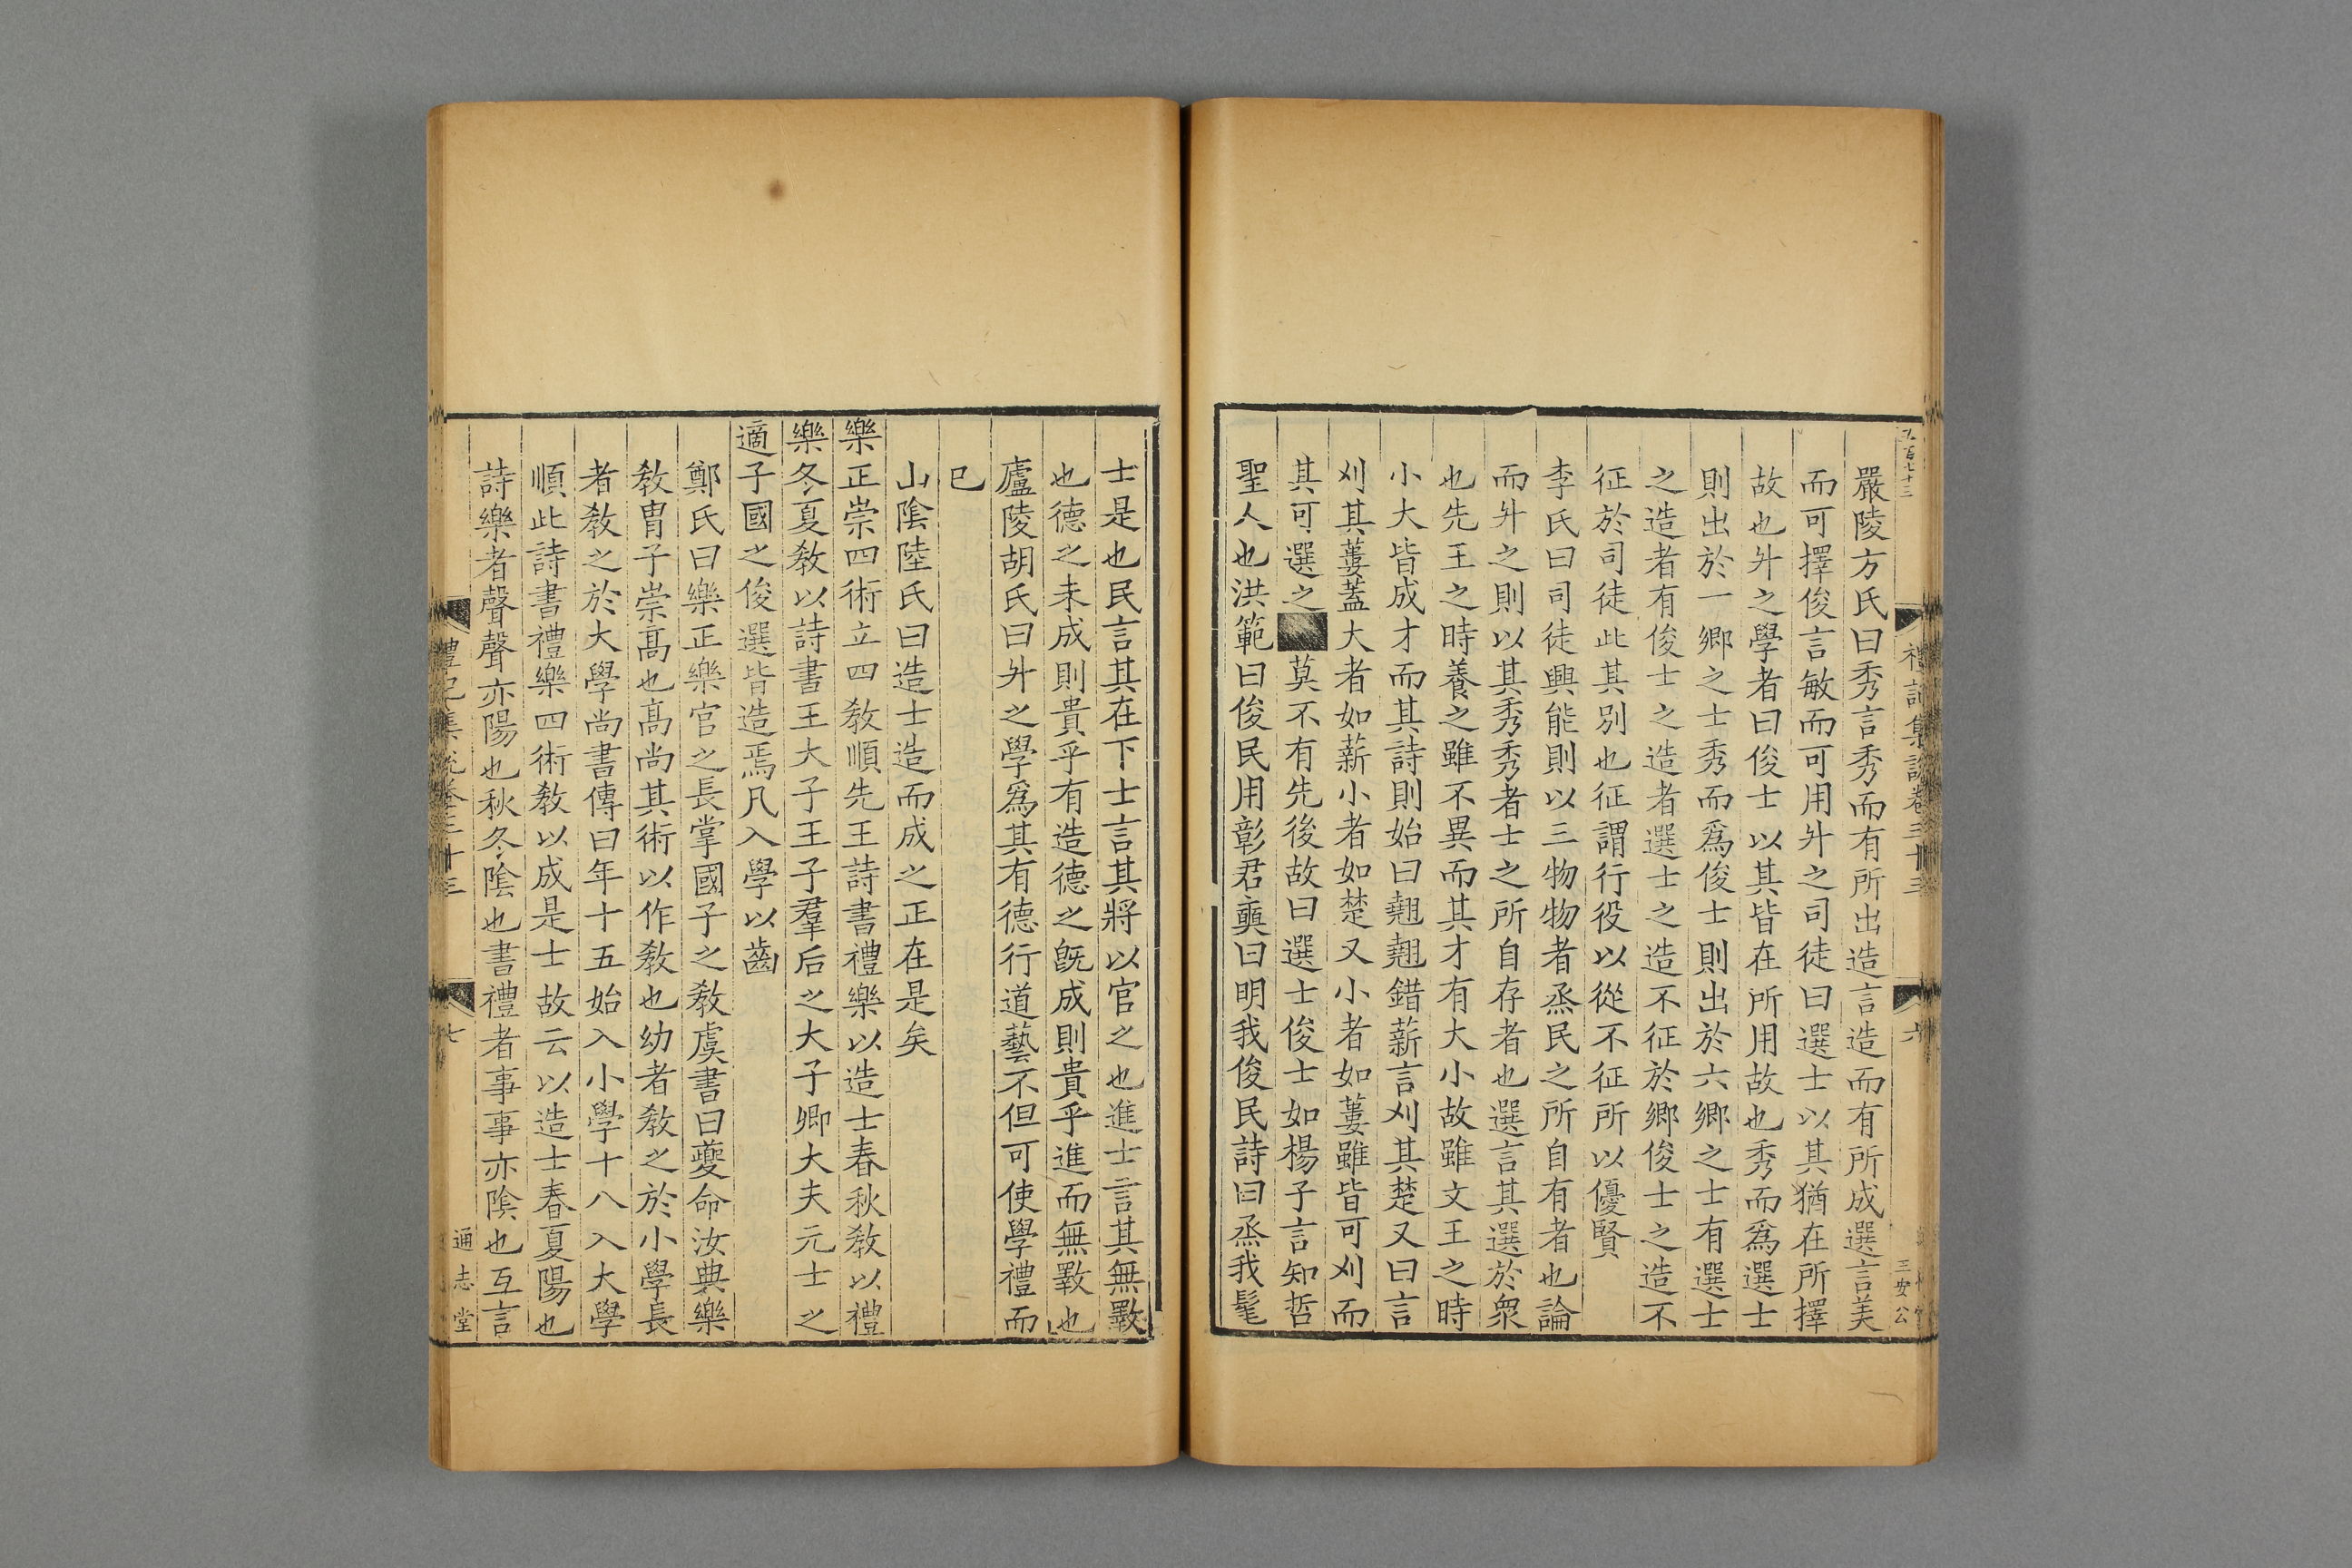 禮記集說卷三十三
六
嚴陵方氏曰秀言秀而有所出造言造而有所成選言美
而可擇俊言敏而可用升之司徒曰選士以其猶在所擇
故也升之學者曰俊士以其皆在所用故也秀而爲選士
則出於一鄉之士秀而爲俊士則出於六鄉之士有選士
之造者有俊士之造者選士之造不征於鄉俊士之造不
征於司徒此其別也征謂行役以從不征所以優賢
李氏曰司徒興能則以三物物者烝民之所自有者也論
而升之則以其秀秀者士之所自存者也選言其選於衆
也先王之時養之雖不異而其才有大小故雖文王之時
小大皆成才而其詩則始曰翹翹錯薪言刈其楚又曰言
刈其蔞蓋大者如薪小者如楚又小者如蔞雖皆可刈而
其可選之莫不有先後故曰選士俊士如楊子言知哲
聖人也洪範曰俊民用彰君奭曰明我俊民詩曰烝我髦
士是也民言其在下士言其將以官之也進士言其無斁
也德之未成則貴乎有造德之既成則貴乎進而無斁也
廬陵胡氏曰升之學爲其有德行道藝不但可使學禮而
已
山陰陸氏曰造士造而成之正在是矣
樂正崇四術立四教順先王詩書禮樂以造士春秋教以禮
樂冬夏教以詩書王大子王子羣后之大子卿大夫元士之
適子國之俊選皆造焉凡入學以齒
鄭氏曰樂正樂官之長掌國子之教虞書曰夔命汝典樂
教胄子崇高也高尚其術以作教也幼者教之於小學長
者教之於大學尚書傳曰年十五始入小學十八入大學
順此詩書禮樂四術教以成是士故云以造士春夏陽也
詩樂者聲聲亦陽也秋冬陰也書禮者事事亦陰也互言
禮記集說卷三十三
七
通志堂